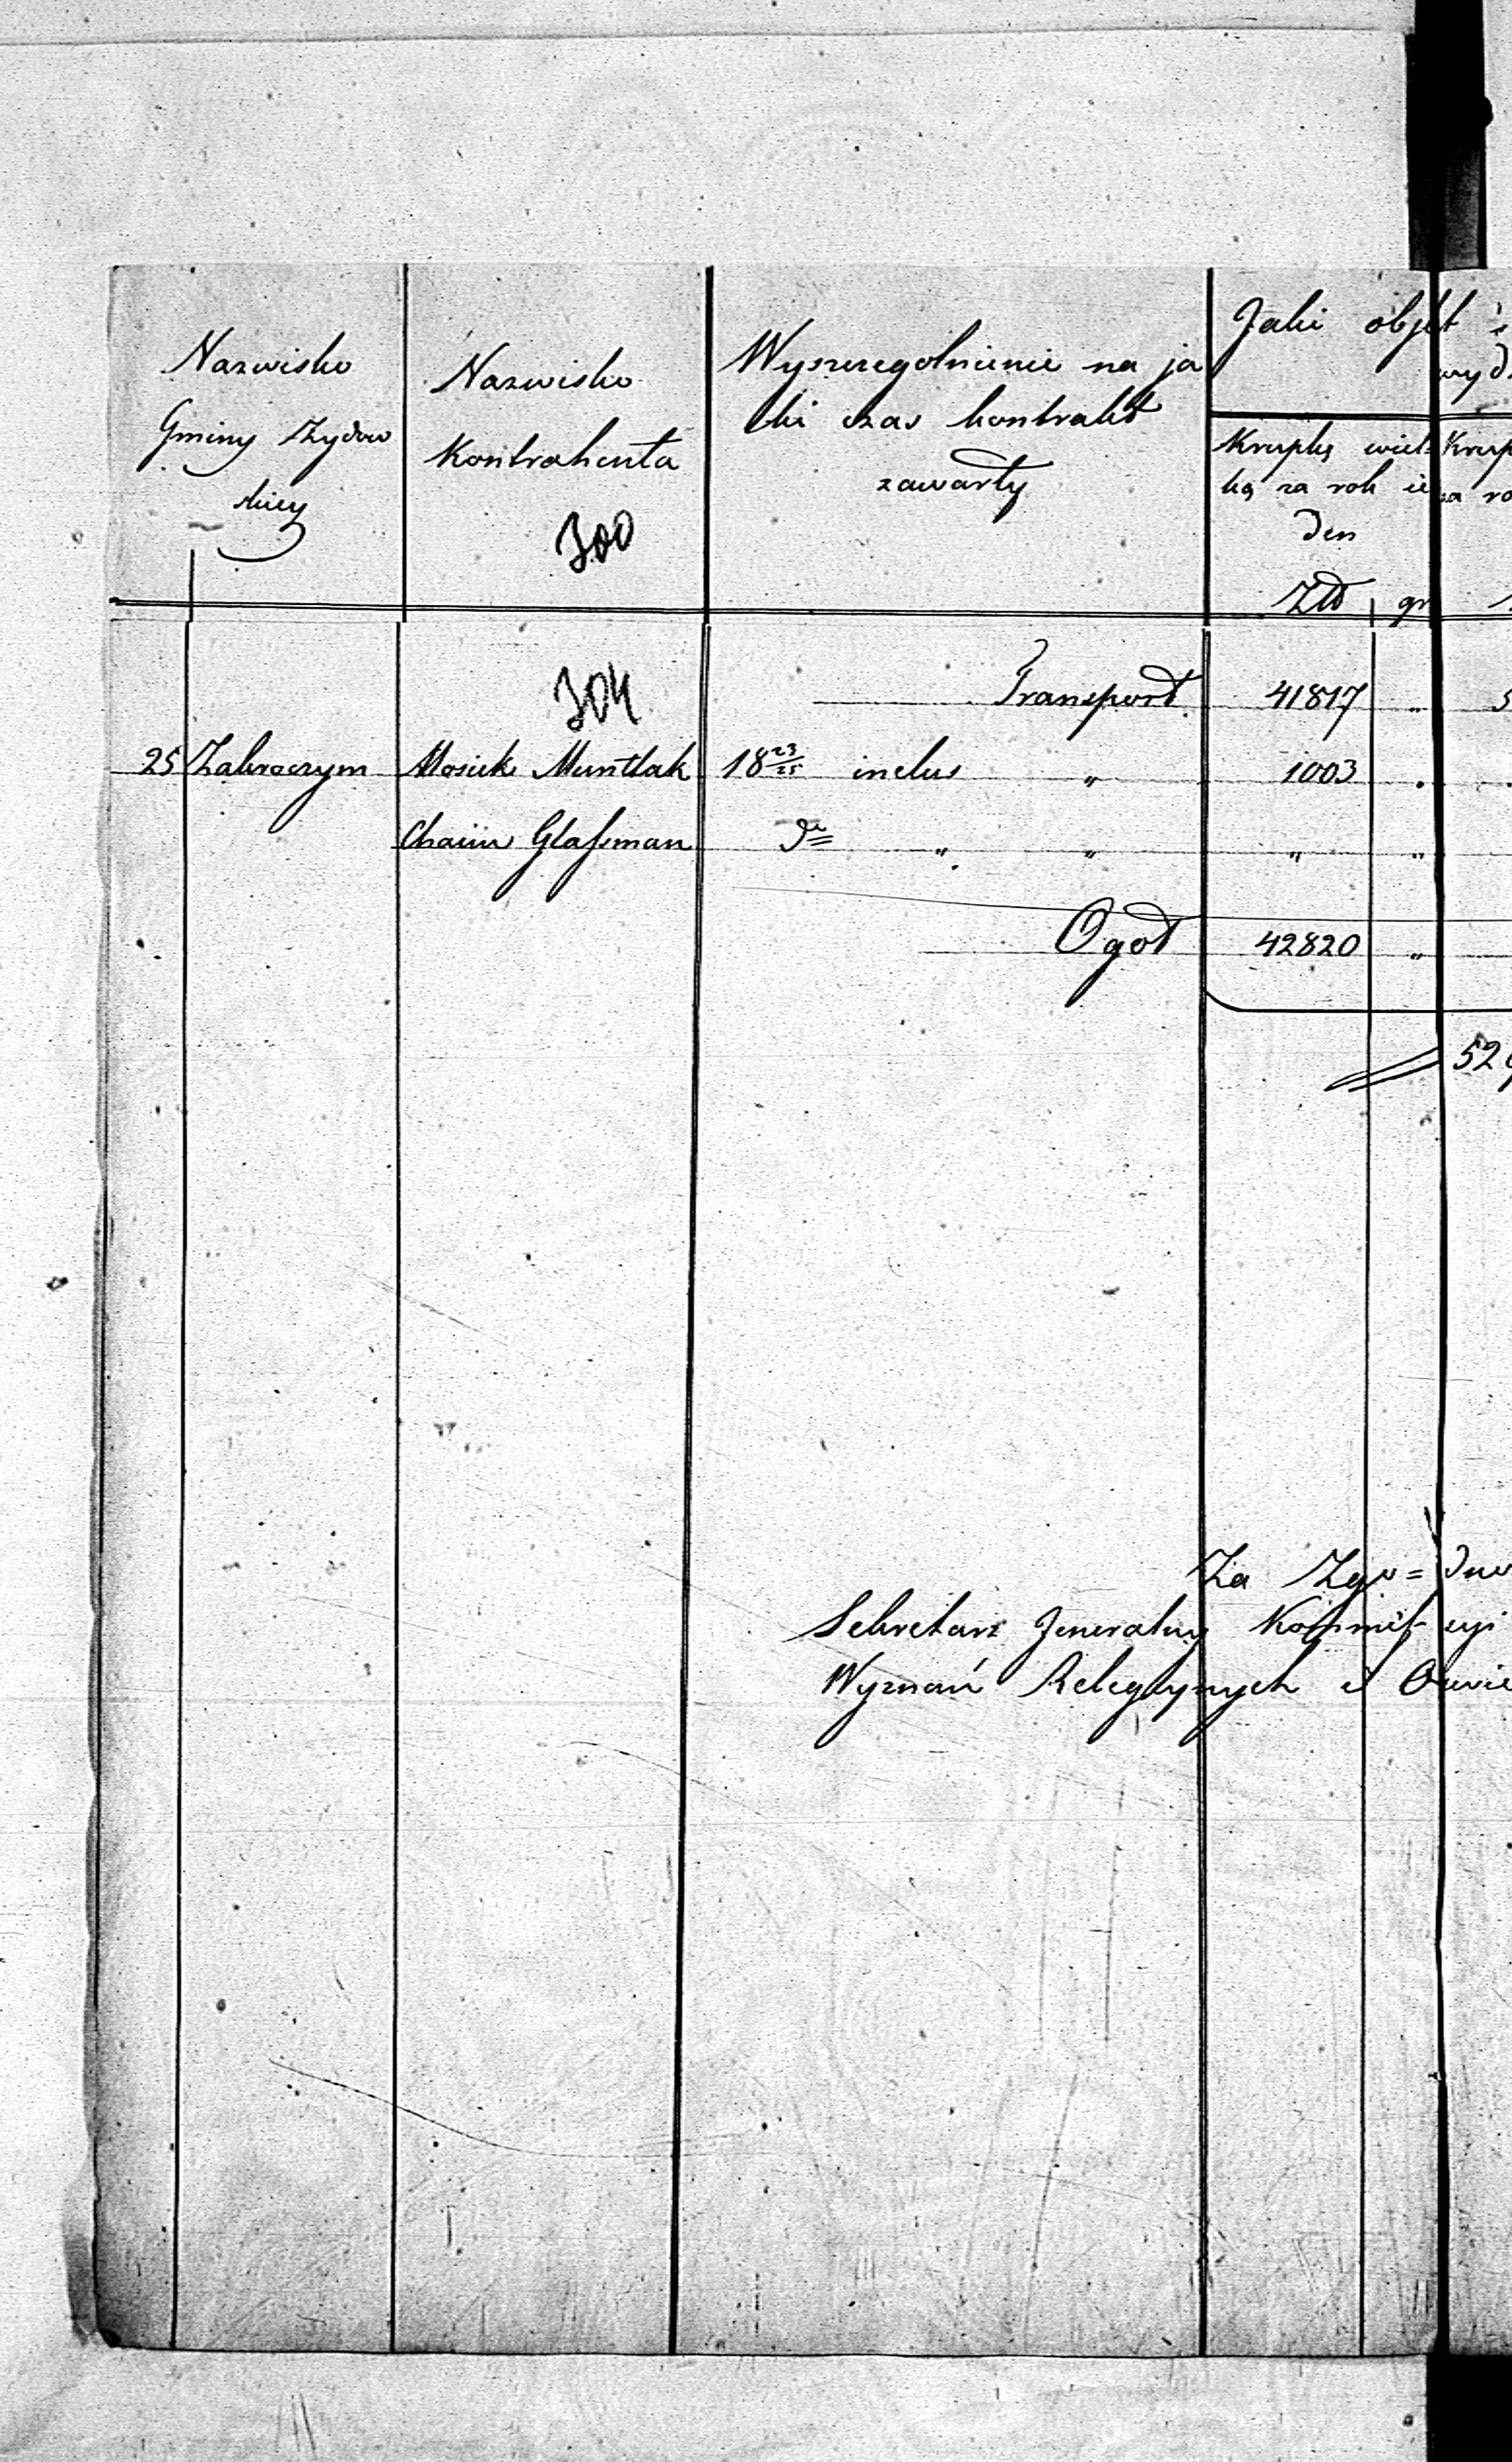 Nazwisko
Gminy Żydow
skiey
Nazwisko
Kontrahenta
300
Wyszczegolnienie na ja
ki czas kontrakt
zawarty
Jaki objekt
wyd
Krupkę wiel
ką za rok ie
den
Złł gr
Krup
za ro
304
Transport 41817 „
25 Zakroczym Mosiek Muntlak 18 23/25 inclus „ 1003 .
Chaim Glaſsman do „ „ „ „
Ogoł 42820 „
52
Za Zgo= dno
Sekretarz Jeneralny Kommiſ syi
Wyznań Religiynych i Oswie